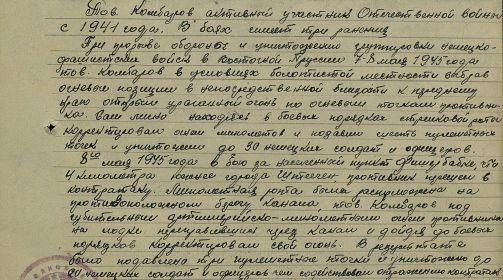 Тов. Комбаров активный участник Отечественной войны
с 1941 года. В боях имеет три ранения
При прорыве обороны и уничтожении группировки немецко-
фашистских войск в Восточной Пруссии 7-8 мая 1945 года
тов. Комбаров в условиях болотистой местности выбрав
огневые позиции в непосредственной близости к переднему
краю открыл ураганный огонь по огневым точкам противни-
ка. Сам лично находясь в боевых порядках стрелковой роты
корректировал огнем минометов и подавил шесть пулеметных
точек и уничтожил до 30 немецких солдат и офицеров.
8го мая 1945 года в бою за населенный пункт что
4 километра южнее города противник перешел в
контратаку. Минометная рота была расположена на
противоположном берегу канала, тов. Комбаров под
губительным артиллерийско-минометным огнем противника
на лодке переправившись через канал и дойдя до боевых
порядков корректировал свой огонь. В результате
было подавлено три пулеметные точки и уничтожено до
20 немецких солдат и офицеров чем содействовал отражению контратаки